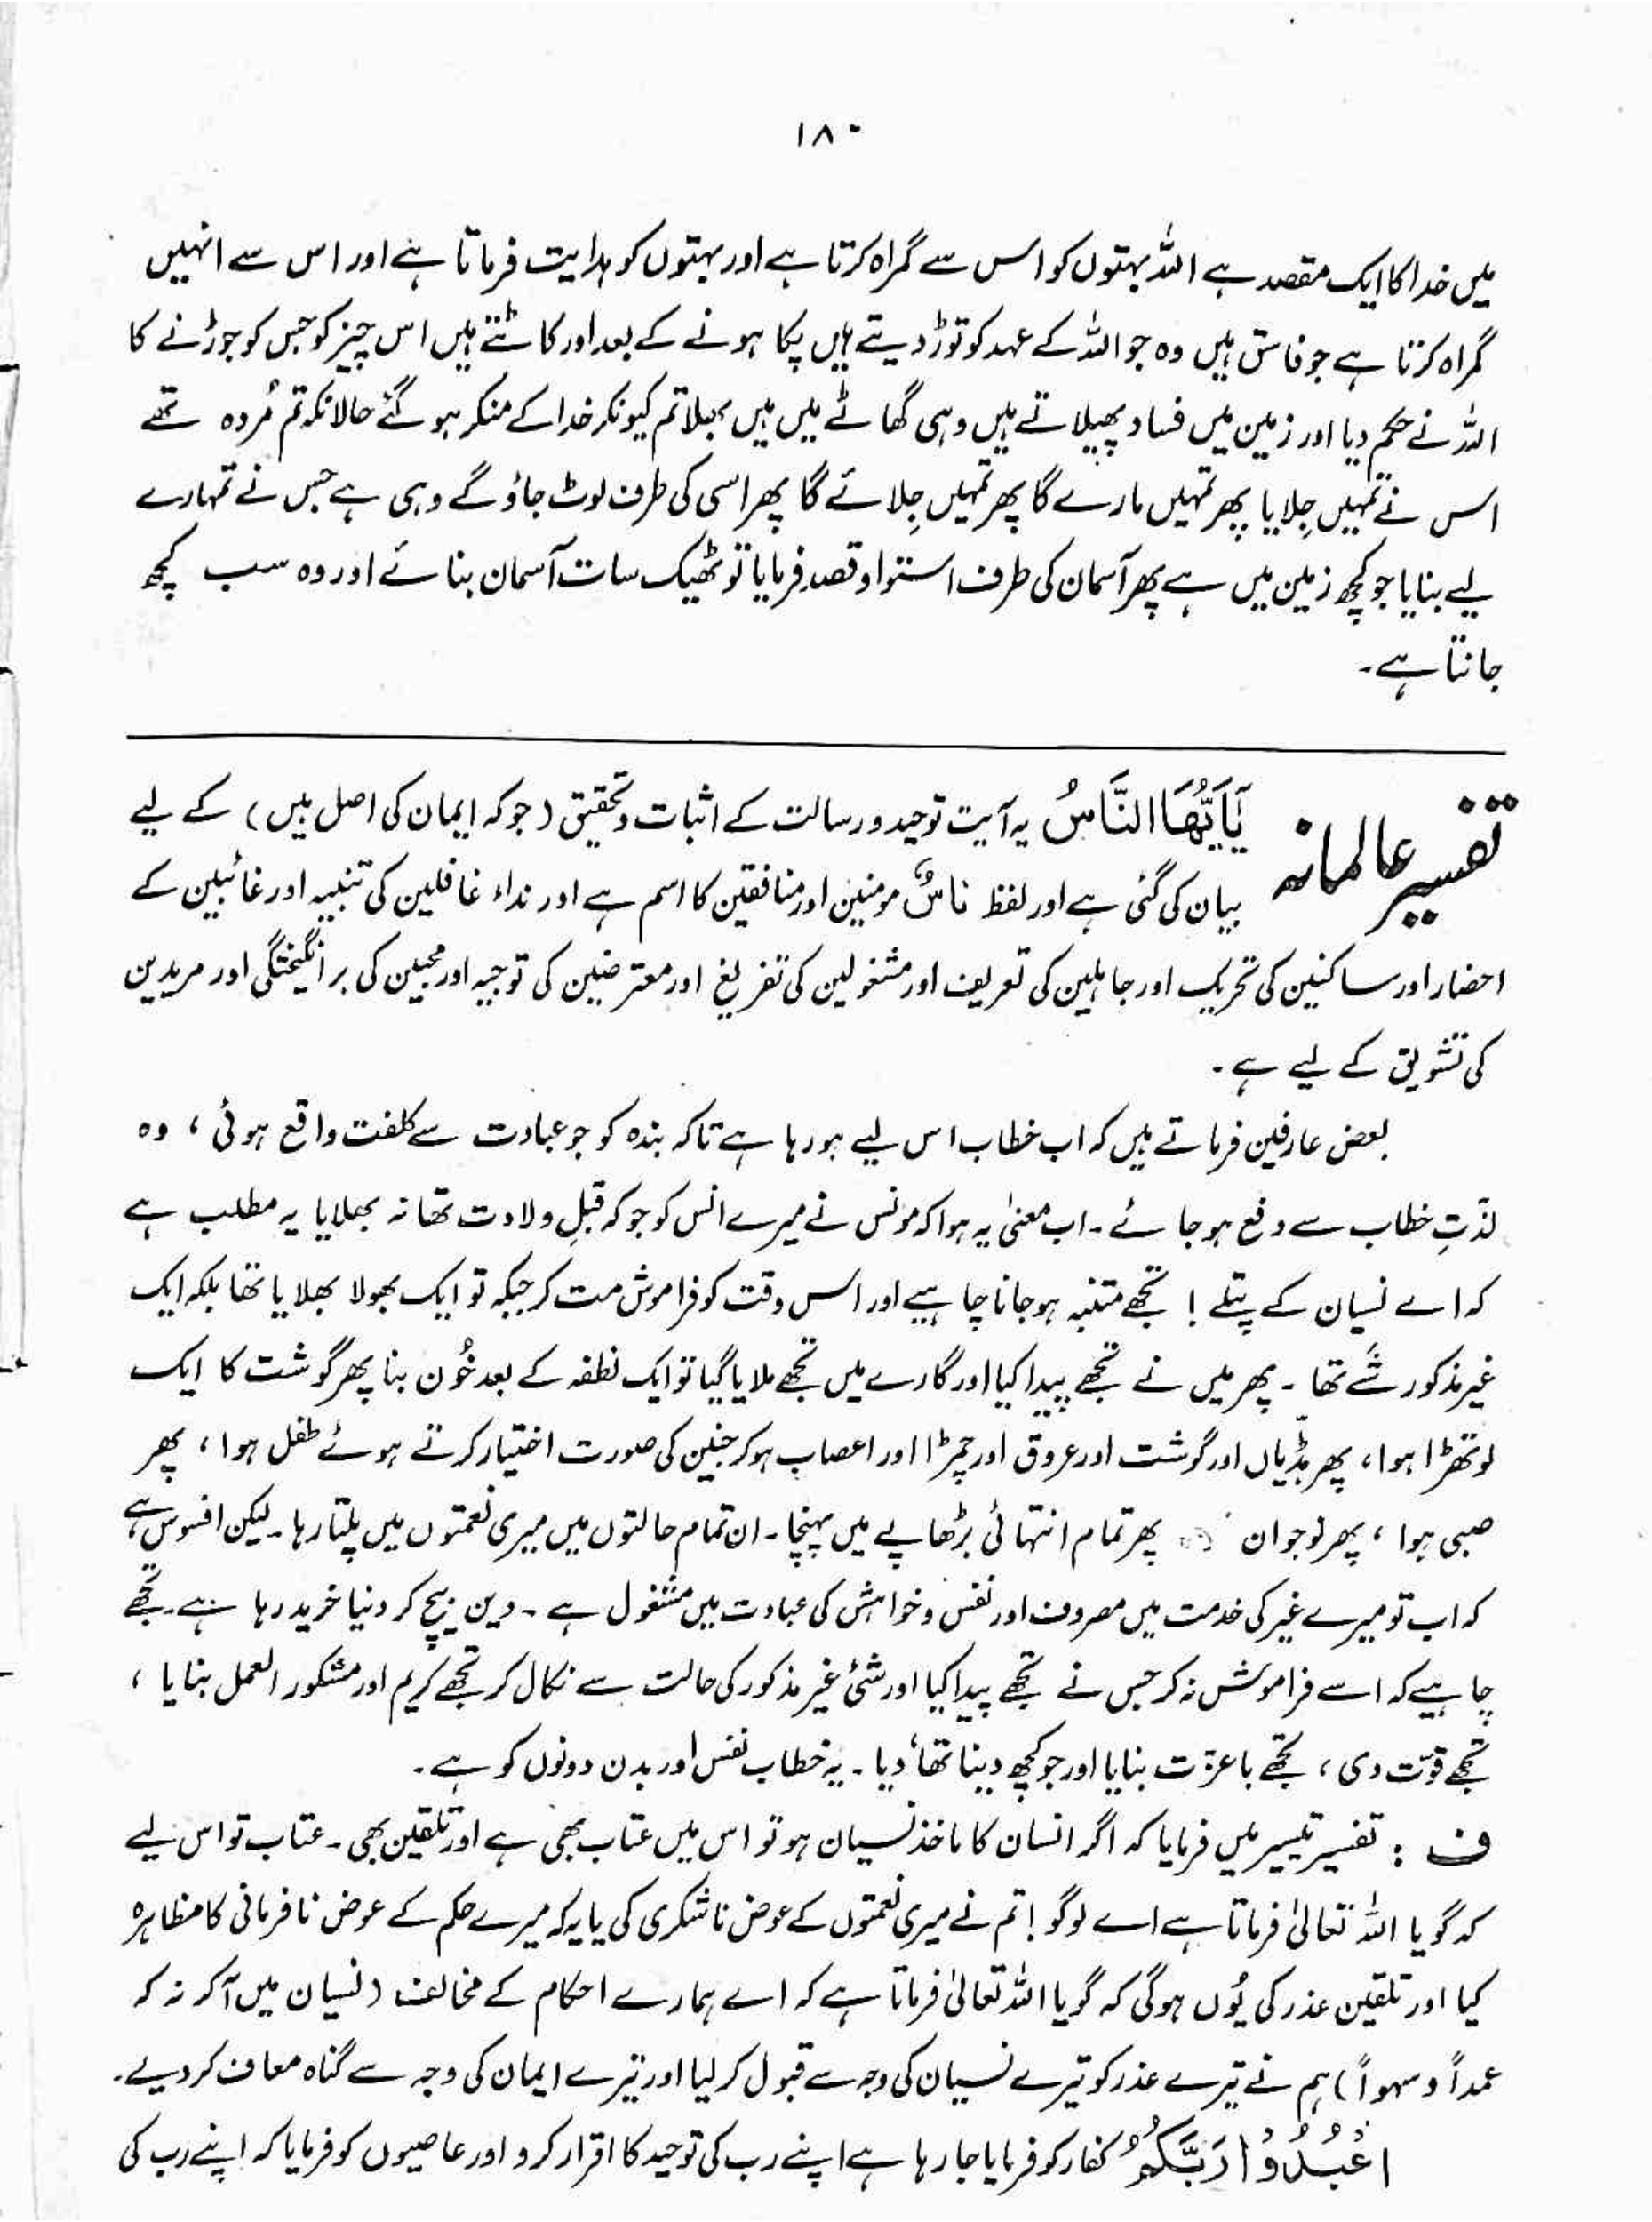 ۱۸۰
میں خدا کا ایک مقصد ہے اللہ بہتوں کو اس سے گمراہ کرتا ہے اور بہتوں کو ہدایت فرماتا ہے اور اس سے انہیں
گمراہ کرتا ہے جو فاسق ہیں وہ جو اللہ کے عہد کو توڑ دیتے ہیں پکا ہونے کے بعد اور کاٹتے ہیں اس چیز کو جس کو جوڑنے کا
اللہ نے حکم دیا اور زمین میں فساد پھیلاتے ہیں وہی گھاٹے میں ہیں بھلا تم کیونکر خدا کے منکر ہو گئے حالانکہ تم مُردہ تھے
اس نے تمہیں جِلایا پھر تمہیں مارے گا پھر تمہیں جِلائے گا پھر اسی کی طرف لوٹ جاؤ گے وہی ہے جس نے تمہارے
لیے بنایا جو کچھ زمین میں ہے پھر آسمان کی طرف استوا و قصد فرمایا تو ٹھیک سات آسمان بنائے اور وہ سب کچھ
جانتا ہے۔
تفسیر عالمانہ یٰٓاَیُّھَا النَّاسُ یہ آیت توحید و رسالت کے اثبات و تحقیق (جو کہ ایمان کی اصل ہیں) کے لیے
بیان کی گئی ہے اور لفظ ناسٌ مومنین اور منافقین کا اسم ہے اور نداء غافلین کی تنبیہ اور غائبین کے
احضار اور ساکنین کی تحریک اور جاہلین کی تعریف اور مشغولین کی تفریغ اور معترضین کی توجیہ اور محبین کی برانگیختگی اور مریدین
کی تشویق کے لیے ہے۔
بعض عارفین فرماتے ہیں کہ اب خطاب اس لیے ہو رہا ہے تاکہ بندہ کو جو عبادت سے کلفت واقع ہوئی ، وہ
لذّتِ خطاب سے دفع ہو جائے۔ اب معنیٰ یہ ہوا کہ مونس نے میرے انس کو جو کہ قبلِ ولادت تھا نہ بھلایا یہ مطلب ہے
کہ اے نسیان کے پتلے ! تجھے متنبہ ہو جانا چاہیے اور اس وقت کو فراموش مت کر جبکہ تو ایک بھولا بھلایا تھا بلکہ ایک
غیر مذکور شے تھا ۔ پھر میں نے تجھے پیدا کیا اور گارے میں تجھے ملایا گیا تو ایک نطفہ کے بعد خُون بنا پھر گوشت کا ایک
لوتھڑا ہوا ، پھر ہڈّیاں اور گوشت اور عروق اور چمڑا اور اعصاب ہو کر جنین کی صورت اختیار کرتے ہوئے طفل ہوا ، پھر
صبی ہوا ، پھر نوجوان پھر تمام انتہائی بڑھاپے میں پہنچا۔ ان تمام حالتوں میں میری نعمتوں میں پلتا رہا۔ لیکن افسوس ہے
کہ اب تو میرے غیر کی خدمت میں مصروف اور نفس و خواہش کی عبادت میں مشغول ہے ۔ دین بیچ کر دنیا خرید رہا ہے۔ تجھے
چاہیے کہ اسے فراموش نہ کر جس نے تجھے پیدا کیا اور شئ غیر مذکور کی حالت سے نکال کر تجھے کریم اور مشکور العمل بنایا ،
تجھے قوّت دی ، تجھے باعزّت بنایا اور جو کچھ دینا تھا' دیا ۔ یہ خطاب نفس اور بدن دونوں کو ہے ۔
ف : تفسیر تیسیر میں فرمایا کہ اگر انسان کا ماخذ نسیان ہو تو اس میں عتاب بھی ہے اور تلقین بھی ۔ عتاب تو اس لیے
کہ گویا اللہ تعالیٰ فرماتا ہے اے لوگو ! تم نے میری نعمتوں کے عوض ناشکری کی یا یہ کہ میرے حکم کے عوض نافرمانی کا مظاہرہ
کیا اور تلقین عذر کی یُوں ہوگی کہ گویا اللہ تعالیٰ فرماتا ہے کہ اے ہمارے احکام کے مخالف (نسیان میں آ کر نہ کہ
عمداً و سہواً) ہم نے تیرے عذر کو تیرے نسیان کی وجہ سے قبول کر لیا اور تیرے ایمان کی وجہ سے گناہ معاف کر دیے۔
اعْبُدُوْا رَبَّکُمُ کفار کو فرمایا جا رہا ہے اپنے رب کی توحید کا اقرار کرو اور عاصیوں کو فرمایا کہ اپنے رب کی